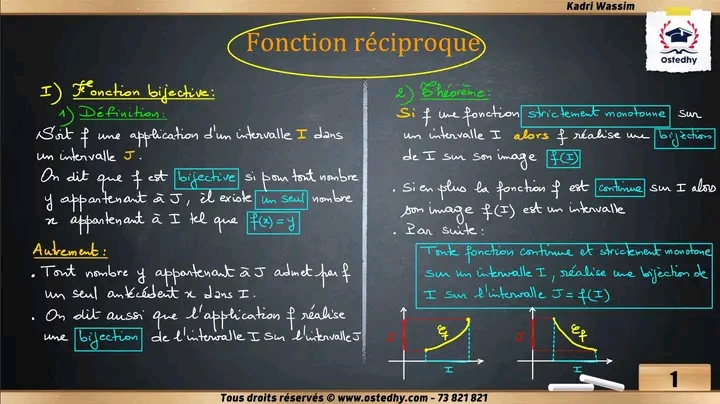 Kadri Wassim
Fonction réciproque
Ostedhy
I) Fonction bijective:
1) Définition:
Soit f une application d'un intervalle I dans
un intervalle J.
On dit que f est bijective si pour tout nombre
y appartenant à J, il existe un seul nombre
x appartenant à I tel que f(x) = y
Autrement:
. Tout nombre y appartenant à J admet par f
un seul antécédent x dans I.
. On dit aussi que l'application f réalise
une bijection de l'intervalle I sur l'intervalle J
2) Théorème:
Si f une fonction strictement monotonne sur
un intervalle I alors f réalise une bijection
de I sur son image f(I)
. Si en plus la fonction f est continue sur I alors
son image f(I) est un intervalle
. Par suite:
Toute fonction continue et strictement monotone
sur un intervalle I, réalise une bijection de
I sur l'intervalle J = f(I)
J
Cf
I
J
Cf
I
1
Tous droits réservés © www.ostedhy.com - 73 821 821